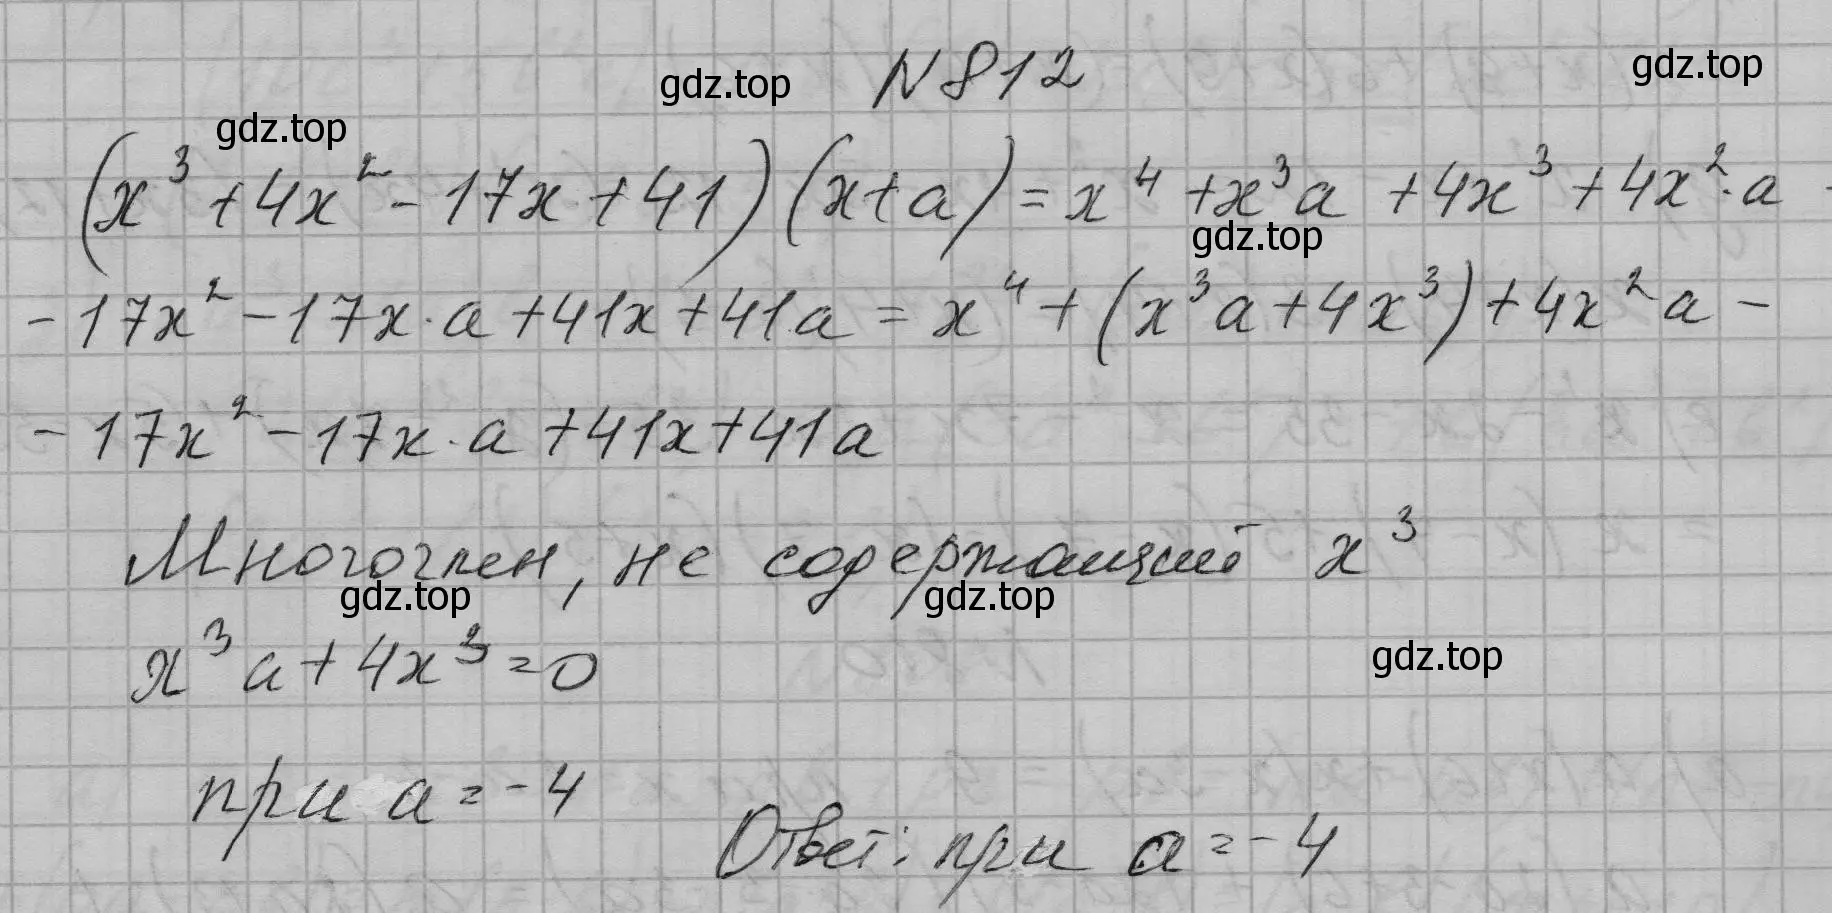 N 812
gdz.top
gdz.top
gdz.top
(x³ + 4x² - 17x + 41)(x + a) = x⁴ + x³a + 4x³ + 4x²·a -
gdz.top
- 17x² - 17x·a + 41x + 41a = x⁴ + (x³a + 4x³) + 4x²a -
- 17x² - 17x·a + 41x + 41a
Многочлен, не содержащий x³
gdz.top
gdz.top
x³a + 4x³ = 0
gdz.top
при a = -4
Ответ: при a = -4